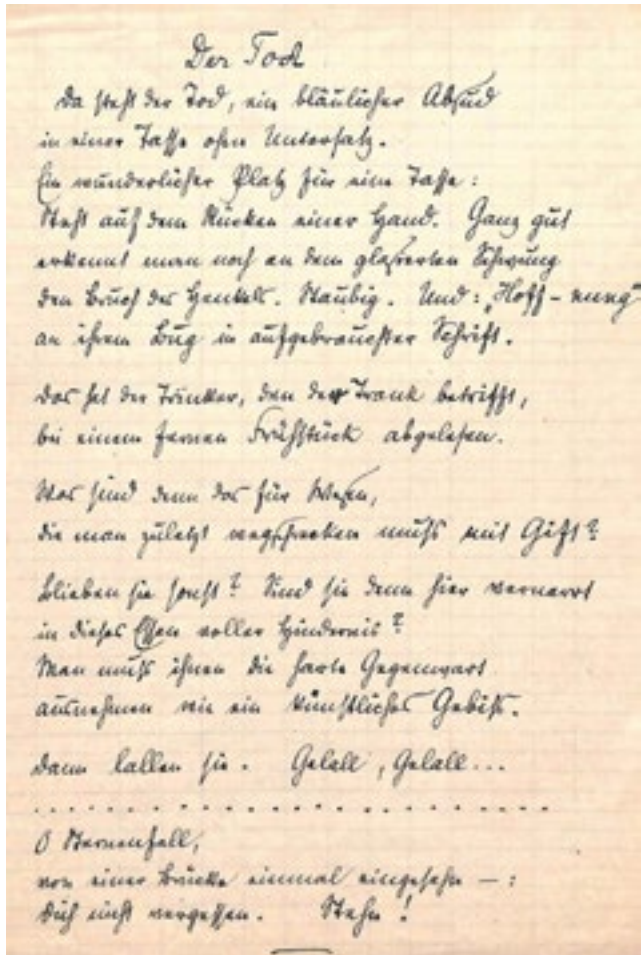 Der Tod
Da steht der Tod, ein bläulicher Absud
in einer Tasse ohne Untersatz.
Ein wunderlicher Platz für eine Tasse:
Steht auf dem Rücken einer Hand. Ganz gut
erkennt man noch an dem glasierten Schwung
den Bruch des Henkels. Staubig. Und: „Hoff-nung"
an ihrem Bug in aufgebrauchter Schrift.
Das hat der Trinker, den der Trank betrifft,
bei einem fernen Frühstück abgelesen.
Was sind denn das für Wesen,
die man zuletzt wegschrecken muß mit Gift?
Blieben sie sonst? Sind sie denn hier vernarrt
in dieses Essen voller Hindernis?
Man muß ihnen die harte Gegenwart
ausnehmen wie ein künstliches Gebiß.
Dann lallen sie. Gelall, Gelall...
. . . . . . . . . . . . . . . . . . . .
O Sternenfall,
von einer Brücke einmal eingesehn —:
Dich nicht vergessen. Stehn!